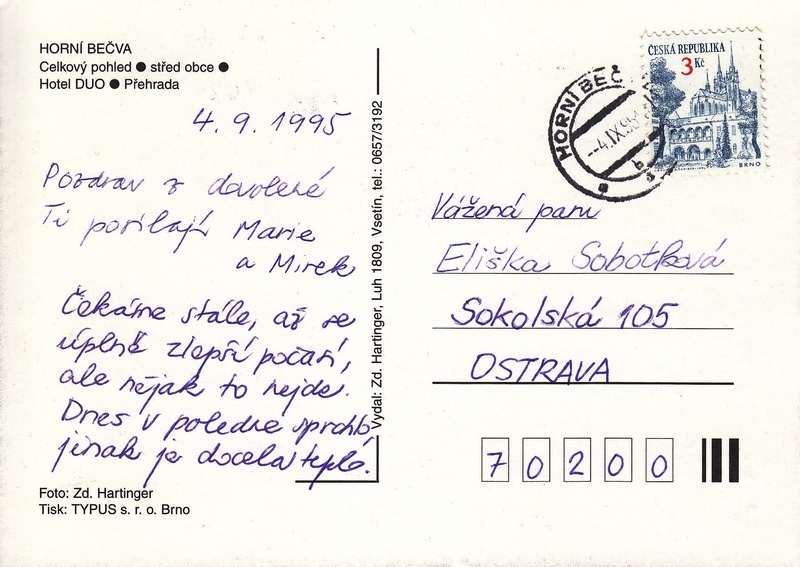 HORNÍ BEČVA
Celkový pohled ● střed obce ●
Hotel DUO ● Přehrada
4. 9. 1995
Pozdrav z dovolené
Ti posílají Marie
a Mirek
Čekáme stále, až se
úplně zlepší počasí,
ale nějak to nejde.
Dnes v poledne sprchlo
jinak je docela teplo.
Foto: Zd. Hartinger
Tisk: TYPUS s. r. o. Brno
Vydal: Zd. Hartinger, Luh 1809, Vsetín, tel.: 0657/3192
HORNÍ BEČ
-4.IX.95
ČESKÁ REPUBLIKA
3 Kč
BRNO
Vážená paní
Eliška Sobotková
Sokolská 105
OSTRAVA
70200